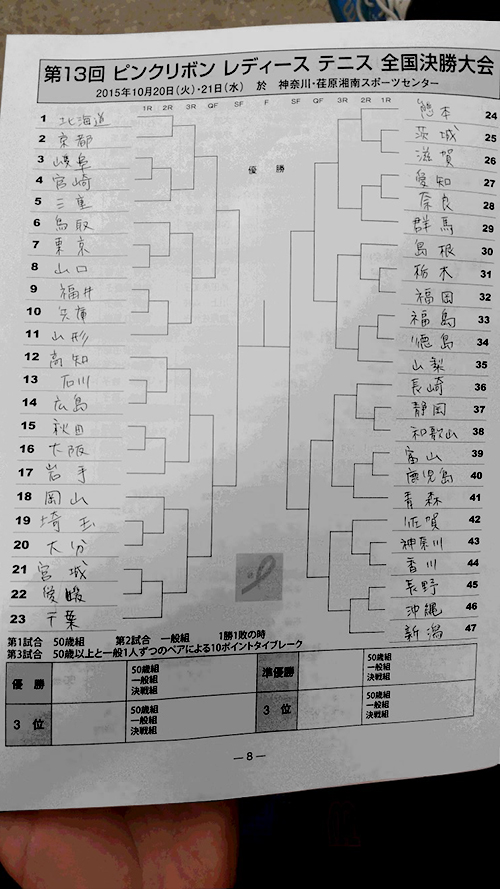 第13回 ピンクリボン レディース テニス 全国決勝大会
2015年10月20日(火)・21日(水) 於 神奈川・荏原湘南スポーツセンター
1R 2R 3R QF SF F SF QF 3R 2R 1R
優 勝
1 北海道
2 京都
3 岐阜
4 宮崎
5 三重
6 鳥取
7 東京
8 山口
9 福井
10 兵庫
11 山形
12 高知
13 石川
14 広島
15 秋田
16 大阪
17 岩手
18 岡山
19 埼玉
20 大分
21 宮城
22 愛媛
23 千葉
熊本 24
茨城 25
滋賀 26
愛知 27
奈良 28
群馬 29
島根 30
栃木 31
福岡 32
福島 33
徳島 34
山梨 35
長崎 36
静岡 37
和歌山 38
富山 39
鹿児島 40
青森 41
佐賀 42
神奈川 43
香川 44
長野 45
沖縄 46
新潟 47
第1試合 50歳組 第2試合 一般組 1勝1敗の時
第3試合 50歳以上と一般1人ずつのペアによる10ポイントタイブレーク
優 勝
50歳組
一般組
決戦組
準優勝
50歳組
一般組
決戦組
3 位
50歳組
一般組
決戦組
3 位
50歳組
一般組
決戦組
— 8 —